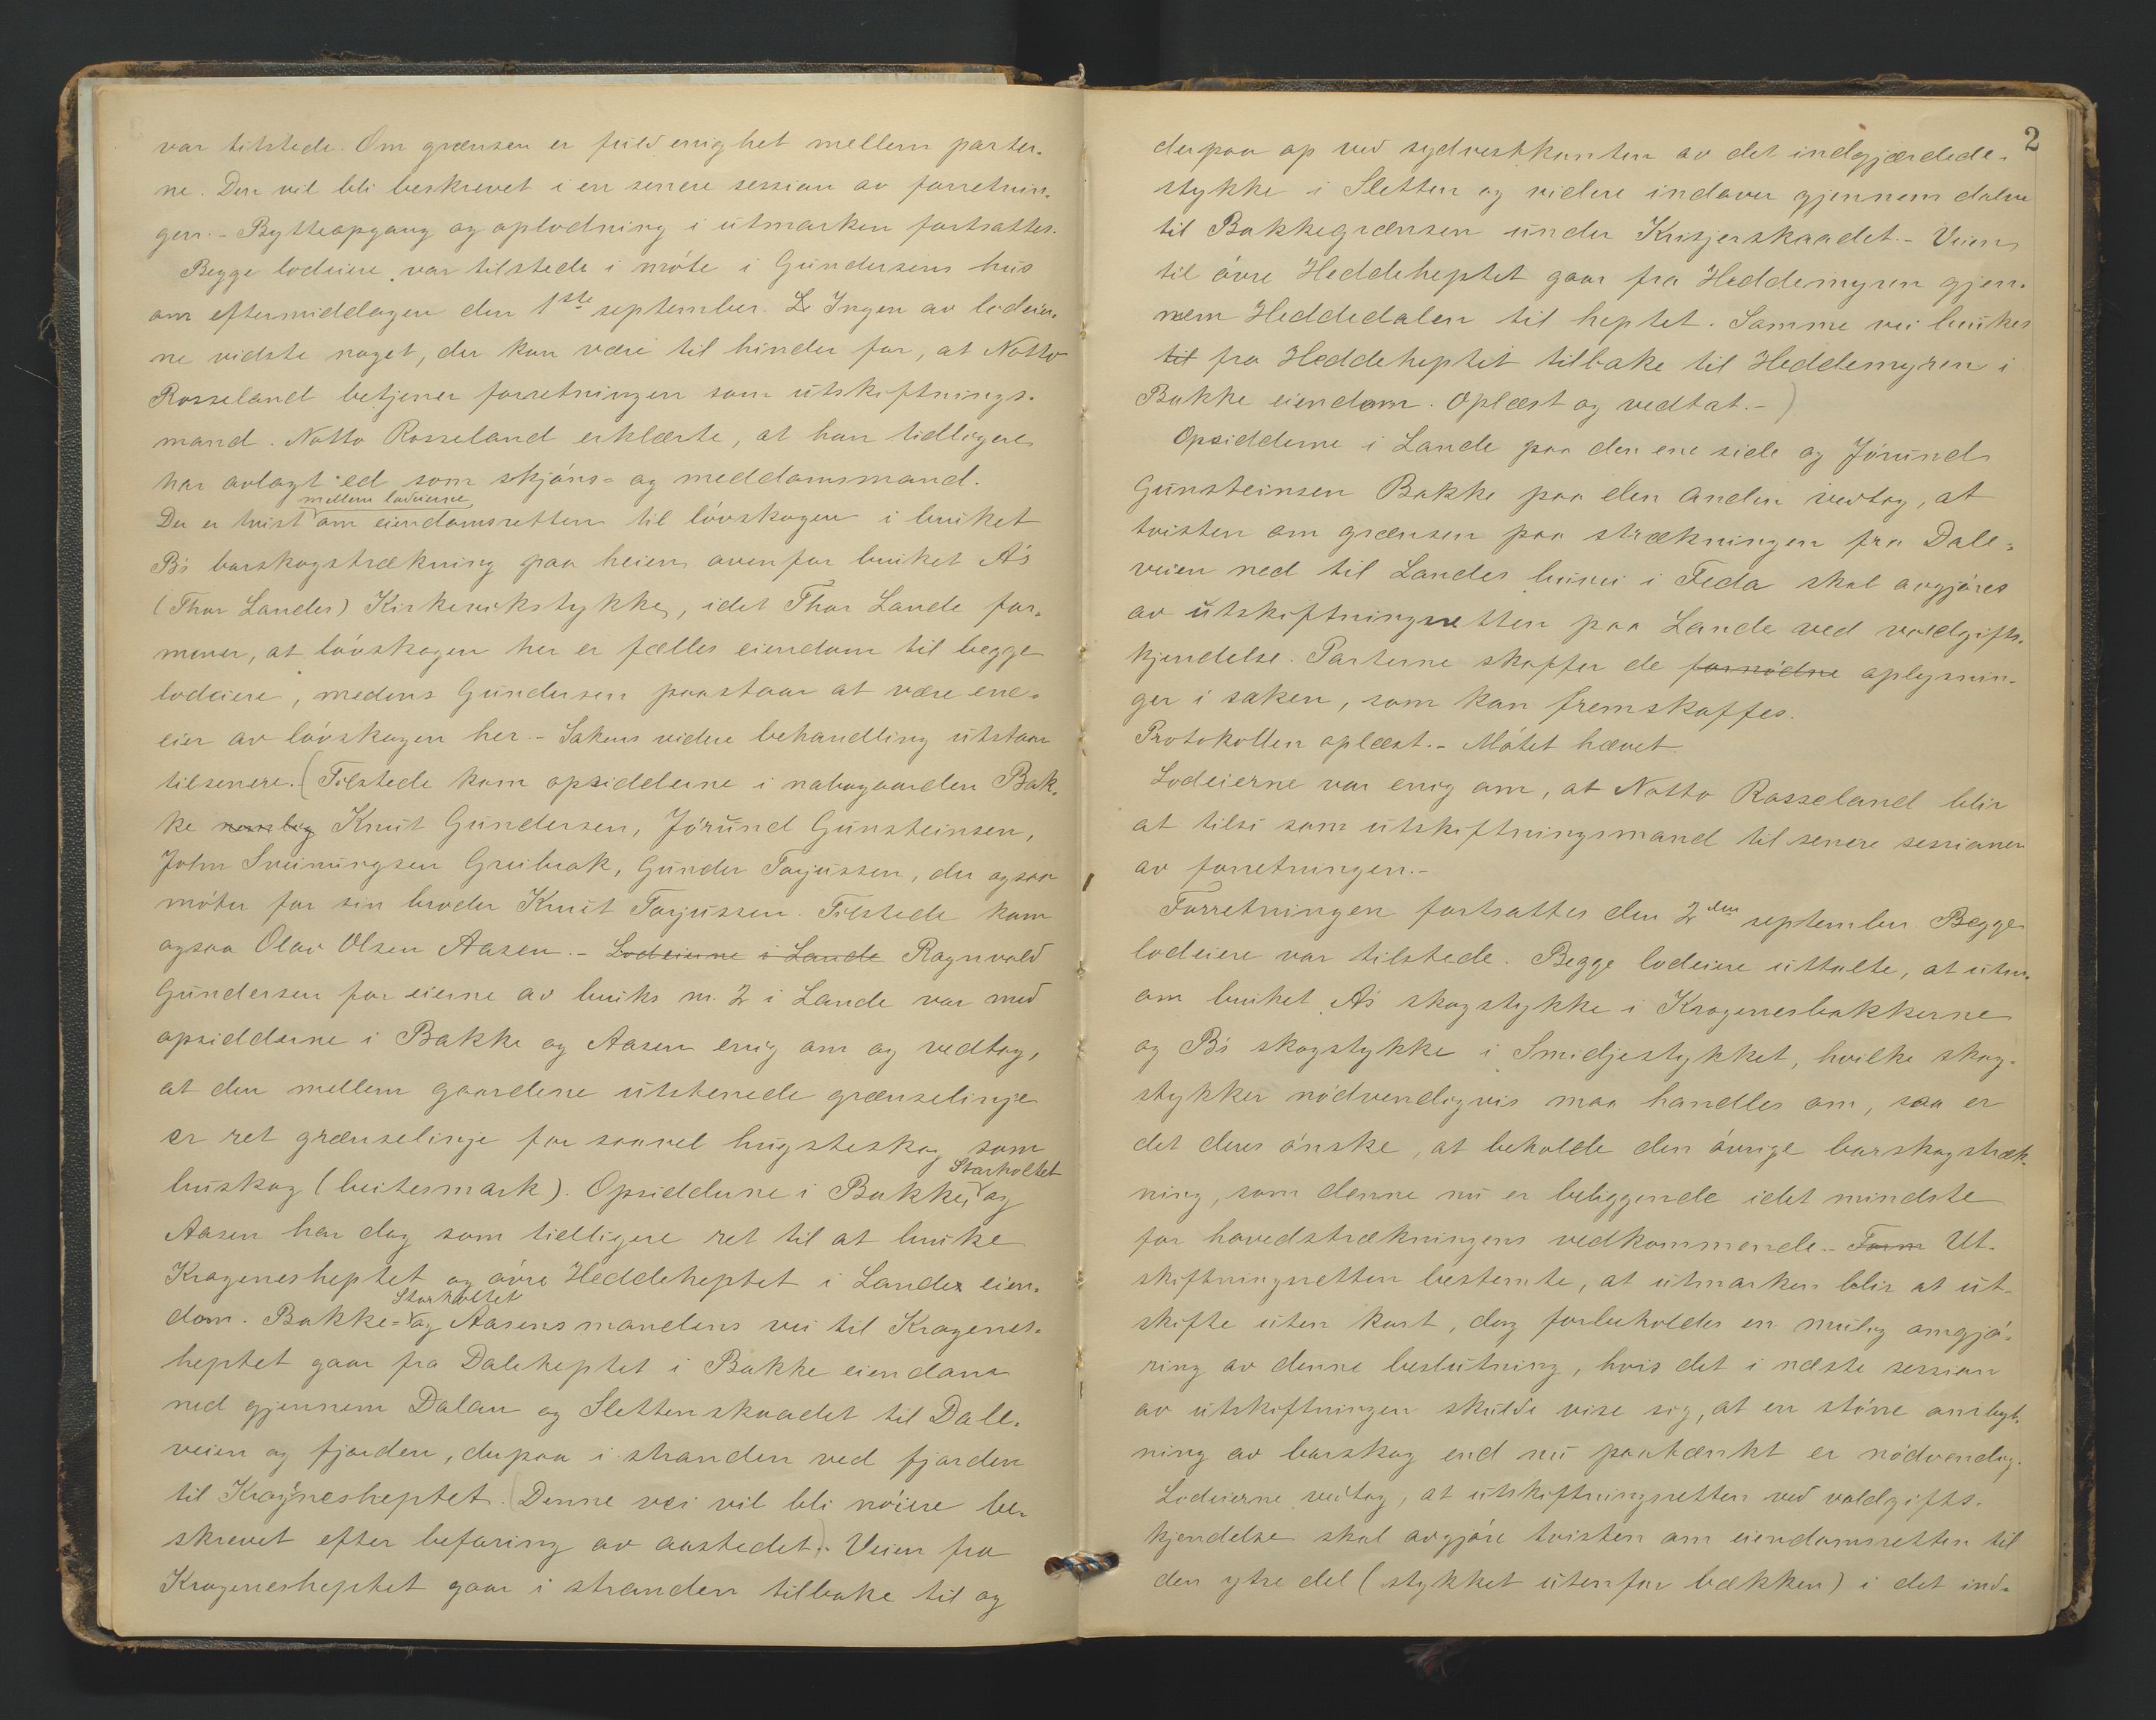 var tilstede. Om grænsen er fuld enighet mellem parter-
ne. Den vil bli beskrevet i en senere session av forretnin-
gen. - Bytteopgang og oplodning i utmarken fortsattes.
Begge lodeiere var tilstede i møte i Gundersens hus
om eftermiddagen den 1ste september. L Ingen av lodeier-
ne vidste noget, der kan være til hinder for, at Notto
Rosseland betjener forretningen som utskiftnings-
mand. Notto Rosseland erklærte, at han tidligere
har avlagt ed som skjøns- og meddomsmand.
mellem lodeierne
Der er tvist om eiendomsretten til løvskogen i bruket
B's barskogstrækning paa heien ovenfor bruket A's
(Thor Landes) Kirkevikstykke, idet Thor Lande for-
mener, at løvskogen her er fælles eiendom til begge
lodeiere, medens Gundersen paastaar at være ene-
eier av løvskogen her. - Sakens videre behandling utstaar
til senere. (Tilstede kom opsidderne i nabogaarden Bak-
ke navnlig Knut Gundersen, Jörund Gunsteinsen,
John Sveinungsen Greibrok, Gunder Torjussen, der ogsaa
møter for sin broder Knut Torjussen. Tilstede kom
ogsaa Olav Olsen Aasen. - Lodeierne i Lande Ragnvald
Gundersen for eierne av bruks nr. 2 i Lande var med
opsidderne i Bakke og Aasen enig om og vedtog,
at den mellem gaardene utstenede grænselinje
er ret grænselinje for saavel hugsteskog som
Storholtet
bruskog (beitesmark). Opsidderne i Bakke, og
Aasen har dog som tidligere ret til at bruke
Kragenesheptet og øvre Heddeheptet i Landes eien-
Storholtet
dom. Bakke- og Aasensmandens vei til Kragenes-
heptet gaar fra Daleheptet i Bakke eiendom
ned gjennem Dalen og Slettenskaadet til Dale-
veien og fjorden, derpaa i stranden ved fjorden
til Kragnesheptet. (Denne vei vil bli nøiere be-
skrevet efter befaring av aastedet). Veien fra
Kragenesheptet gaar i stranden tilbake til og
2
derpaa op ved sydvestkanten av det indgjærdede-
stykke i Sletten og videre indover gjennem dalen
til Bakkegrænsen under Krisjerskaadet. - Veien
til øvre Heddeheptet gaar fra Heddemyren gjen-
nem Heddedalen til heptet. Samme vei brukes
til fra Heddeheptet tilbake til Heddemyren i
Bakke eiendom. Oplæst og vedtat. - )
Opsidderne i Lande paa den ene side og Jörund
Gunsteinsen Bakke paa den anden vedtog, at
tvisten om grænsen paa strækningen fra Dale-
veien ned til Landes brurei i Feda skal avgjøres
av utskiftningsretten paa Lande ved voldgifts-
kjendelse. Parterne skaffer de fornødne oplysnin-
ger i saken, som kan fremskaffes.
Protokollen oplæst. - Møtet hævet.
Lodeierne var enig om, at Notto Rosseland blir
at tilsi som utskiftningsmand til senere sessioner
av forretningen. -
Forretningen fortsattes den 2den september Begge
lodeiere var tilstede. Begge lodeiere uttalte, at uten-
om bruket A's skogstykke i Kragenesbakkerne
og B's skogstykke i Smidjestykket, hvilke skog-
stykker nødvendigvis maa handles om, saa er
det deres ønske, at beholde den øvrige barskogstræk-
ning, som denne nu er beliggende idet mindste
for hovedstrækningens vedkommende. - Form Ut-
skiftningsretten bestemte, at utmarken blir at ut-
skifte uten kart, dog forbeholdes en mulig omgjø-
ring av denne beslutning, hvis det i næste session
av utskiftningen skulde vise sig, at en større ombyt-
ning av barskog end nu paatænkt er nødvendig.
Lodeierne vedtog, at utskiftningsretten ved voldgifts-
kjendelse skal avgjøre tvisten om eiendomsretten til
den ytre del (stykket utenfor bækken) i det ind-